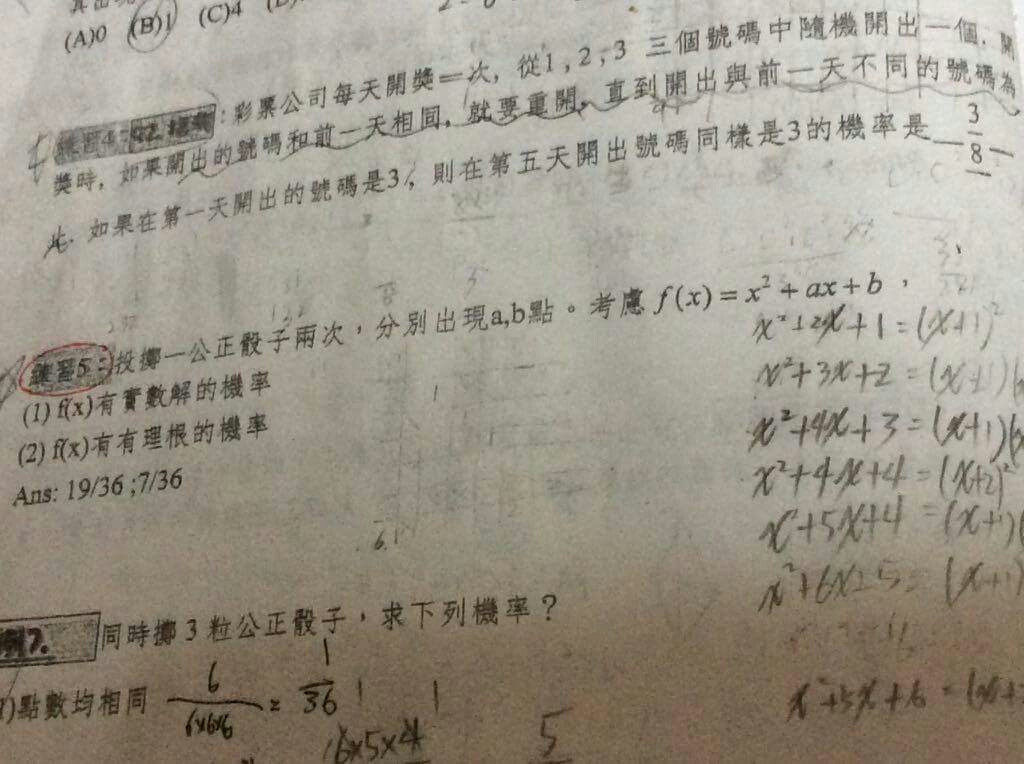 (A)0 (B)1 (C)4
練習4 : 彩票公司每天開獎一次, 從1, 2, 3 三個號碼中隨機開出一個. 開
獎時, 如果開出的號碼和前一天相同, 就要重開, 直到開出與前一天不同的號碼為
止. 如果在第一天開出的號碼是3, 則在第五天開出號碼同樣是3的機率是 3/8
練習5 : 投擲一公正骰子兩次，分別出現a,b點。考慮 f(x) = x² + ax + b ，
(1) f(x)有實數解的機率
(2) f(x)有有理根的機率
Ans: 19/36 ;7/36
x²+2x+1 = (x+1)²
x²+3x+2 = (x+1)(
x²+4x+3 = (x+1)(x
x²+4x+4 = (x+2)²
x²+5x+4 = (x+1)(
x²+6x+5 = (x+1)
x²+5x+6 = (x+
例7. 同時擲 3 粒公正骰子，求下列機率？
)點數均相同 6/(6×6×6) = 1/36
6×5×4 5